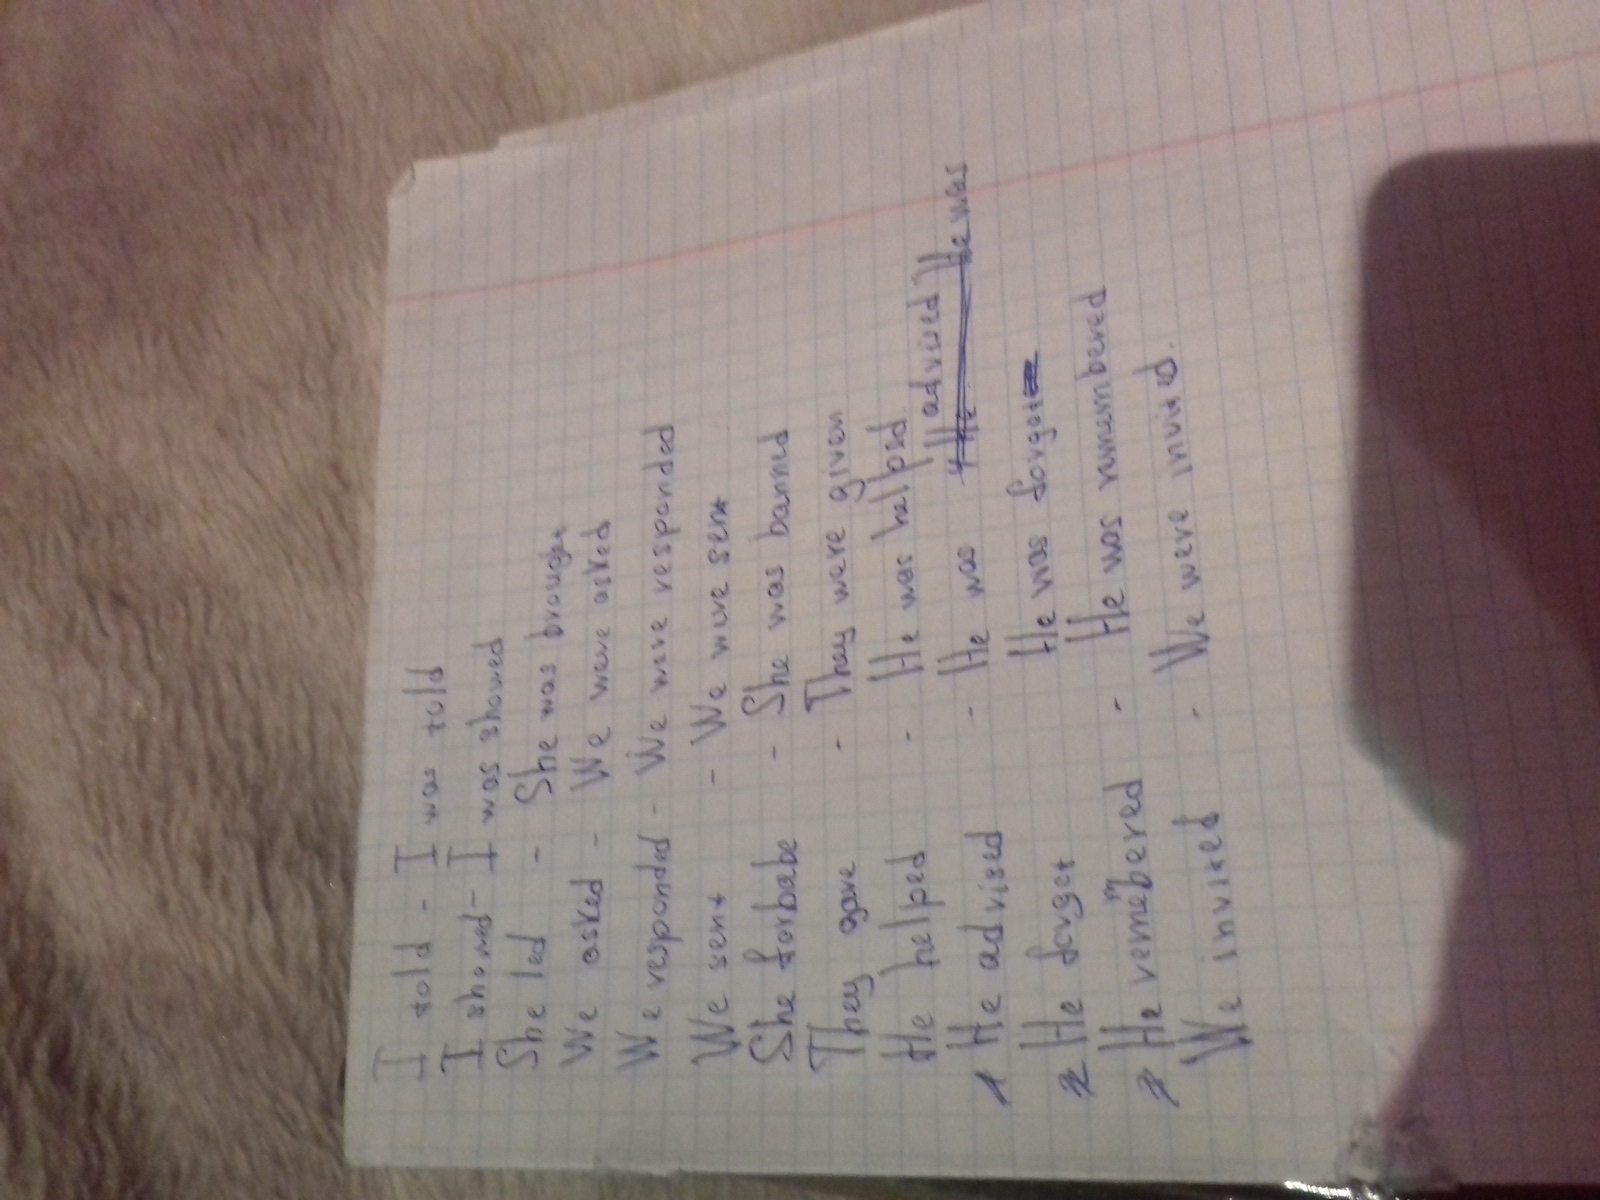 I told - I was told
I showed - I was showed
She led - She was brought
We asked - We were asked
We responded - We were responded
We sent - We were sent
She forbabe - She was banned
They gave - They were given
He helped - He was helped
1 He advised - He was advised
2 He forget He was forgot
He remembered - He was remembered
We invited - We were invited.